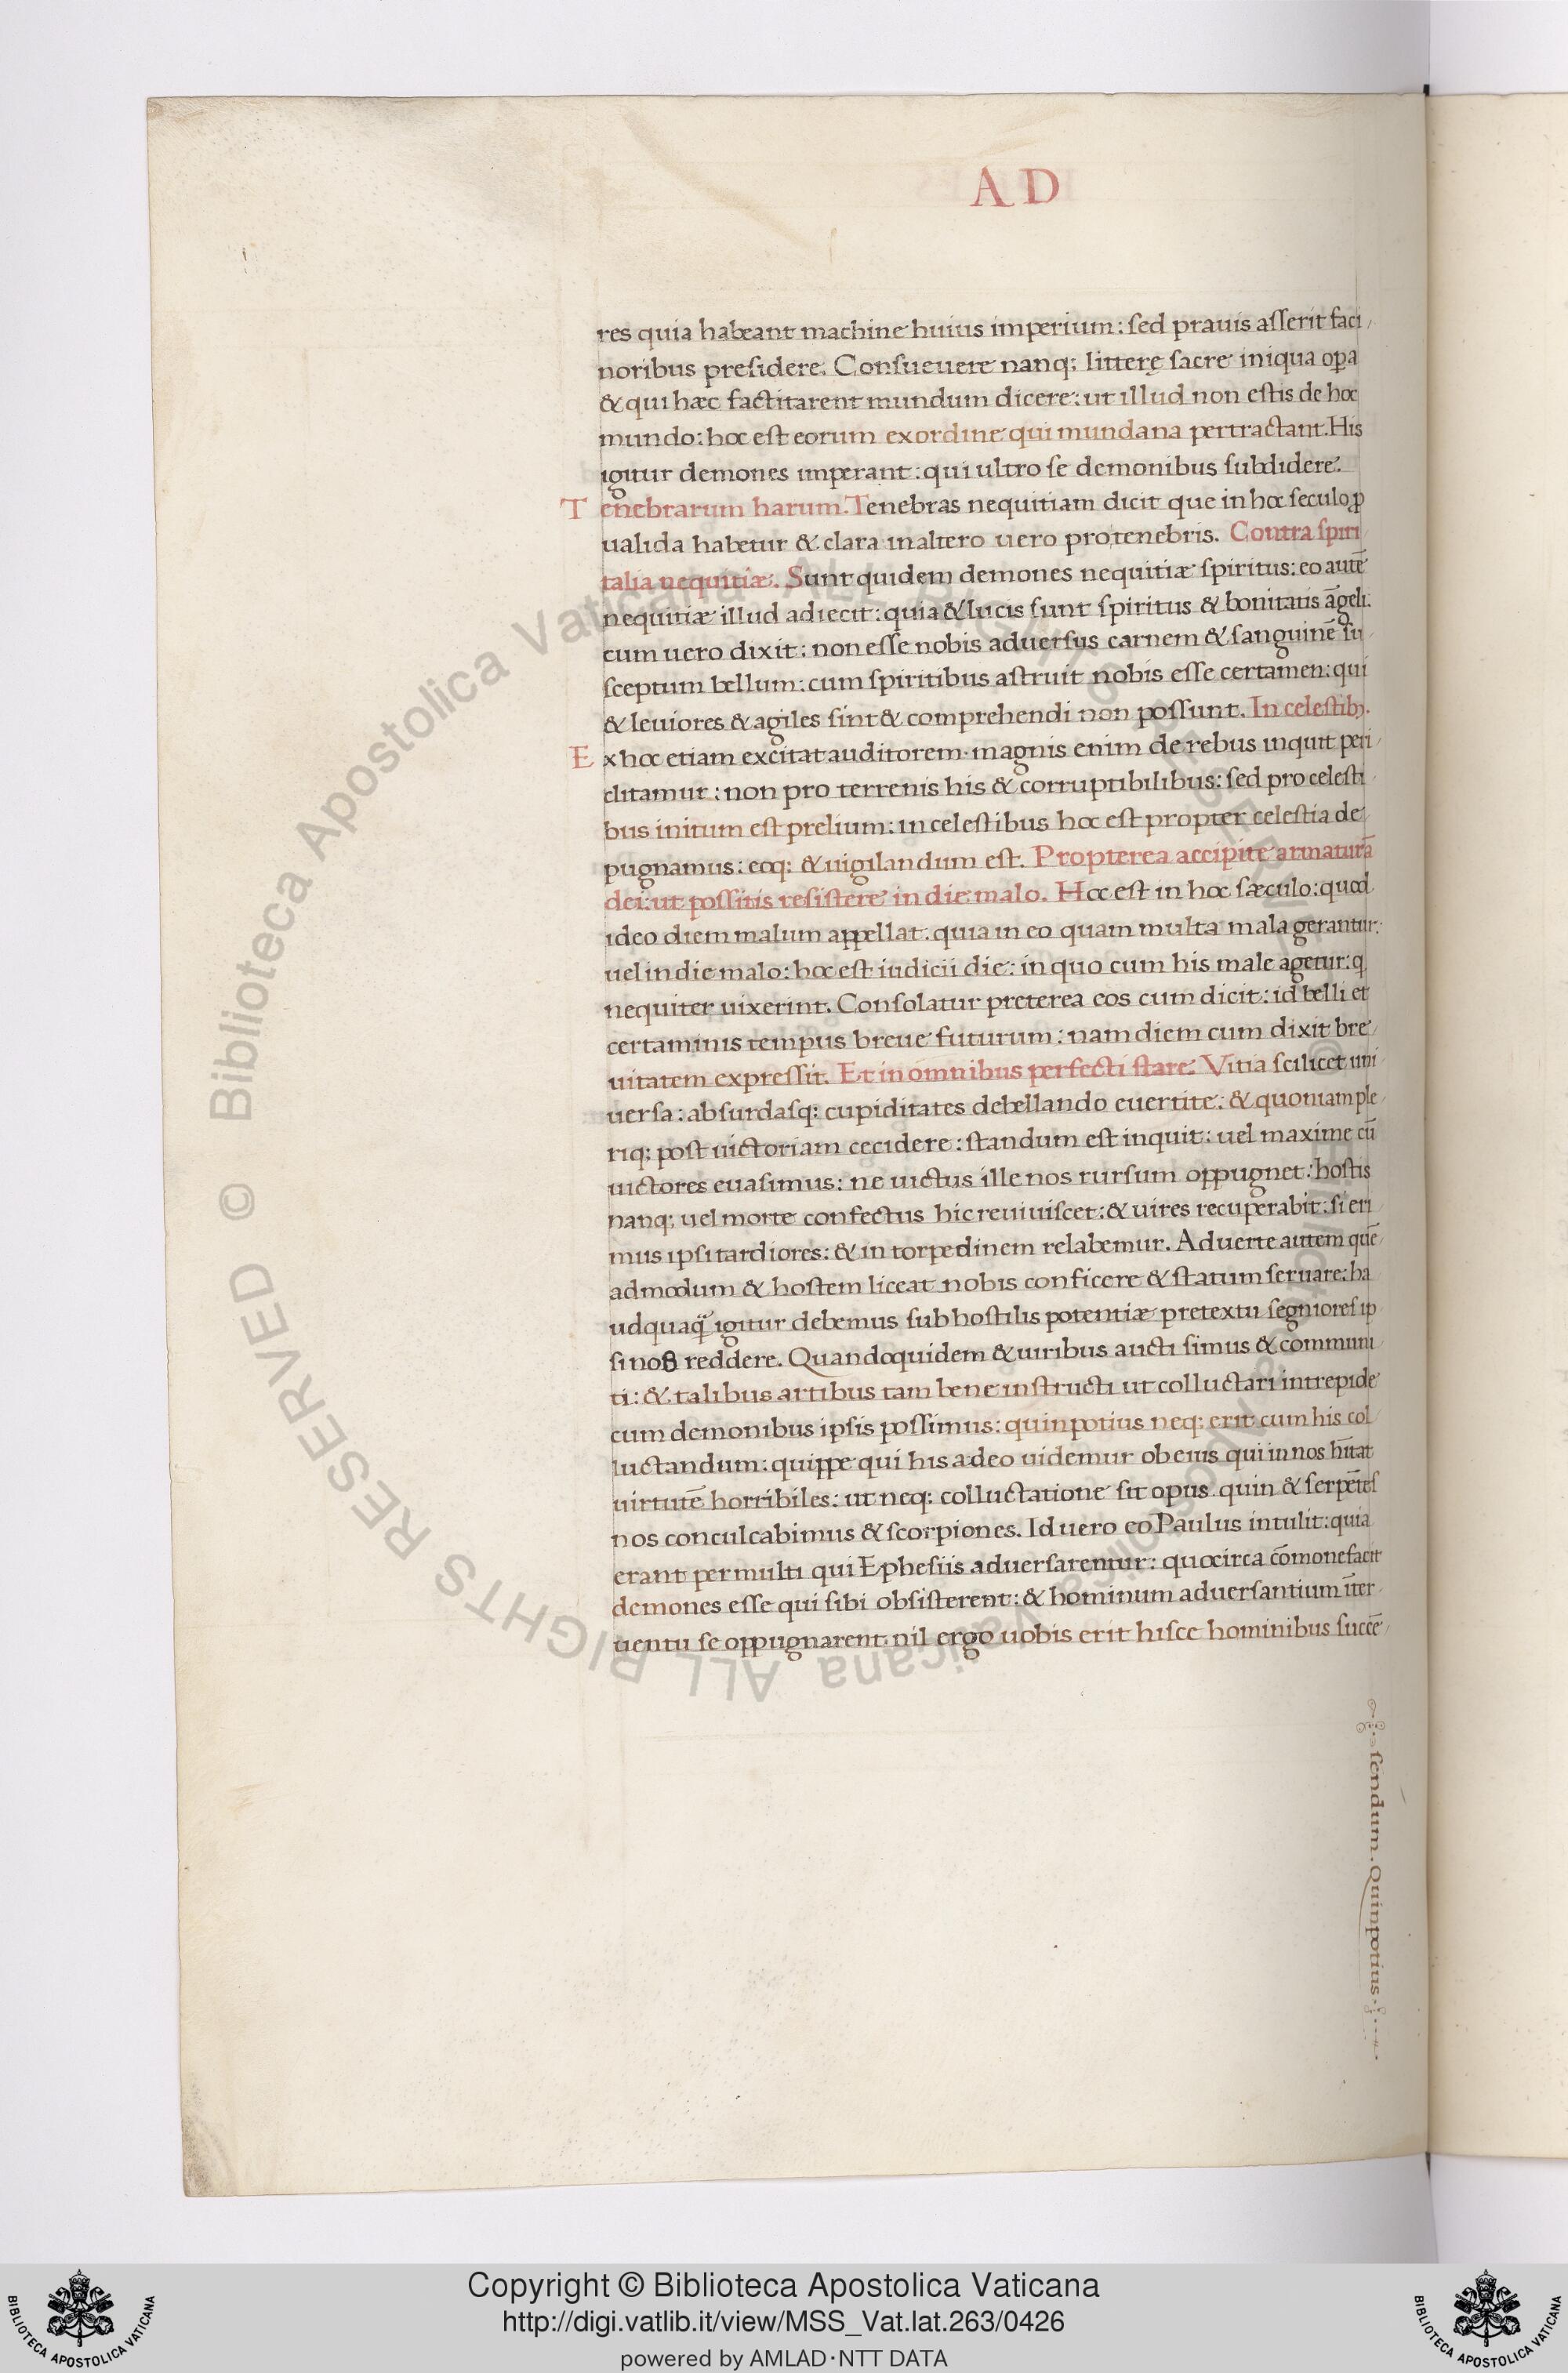 AD
res quia habeant machine huius imperium: sed prauis asserit faci
noribus presidere. Consueuere nanq; litterę sacre iniqua opa
& qui hæc factitarent mundum dicere: ut illud non estis de hoc
mundo: hoc est eorum exordine qui mundana pertractant. His
igitur demones imperant: qui ultro se demonibus subdidere.
Tenebrarum harum. Tenebras nequitiam dicit que in hoc seculo p
ualida habetur & clara in altero uero pro tenebris. Contra spiri
talia nequitiæ. Sunt quidem demones nequitiæ spiritus: eo autē
nequitiæ illud adiecit: quia & lucis sunt spiritus & bonitatis āgeli.
cum uero dixit: non esse nobis aduersus carnem & sanguinē su
sceptum bellum: cum spiritibus astruit nobis esse certamen: qui
& leuiores & agiles sint & comprehendi non possunt. In celestib;.
Ex hoc etiam excitat auditorem. magnis enim de rebus inquit peri
clitamur: non pro terrenis his & corruptibilibus: sed pro celesti
bus initum est prelium: in celestibus hoc est propter celestia de
pugnamus: eoq; & uigilandum est. Propterea accipite armaturā
dei: ut possitis resistere in die malo. Hoc est in hoc sæculo: quod
ideo diem malum appellat. quia in eo quam multa mala gerantur:
uel in die malo: hoc est iudicii die: in quo cum his male agetur: q
nequiter uixerint. Consolatur preterea eos cum dicit: id belli et
certaminis tempus breue futurum: nam diem cum dixit bre
uitatem expressit. Et in omnibus perfecti stare. Vitia scilicet uni
uersa: absurdasq; cupiditates debellando euertite: & quoniam ple
riq; post uictoriam cecidere: standum est inquit: uel maxime cū
uictores euasimus: ne uictus ille nos rursum oppugnet: hostis
nanq; uel morte confectus hic reuiuiscet: & uires recuperabit: si eri
mus ipsi tardiores: & in torpedinem relabemur. Aduerte autem quē
admodum & hostem liceat nobis conficere & statum seruare: ha
udquaq̄ igitur debemus sub hostilis potentiæ pretextu segniores ip
si nos reddere. Quandoquidem & uiribus aucti simus & communi
ti: & talibus artibus tam bene instructi ut colluctari intrepide
cum demonibus ipsis possimus: quin potius neq; erit cum his col
luctandum: quippe qui his adeo uidemur ob eius qui in nos hītat
uirtutē horribiles: ut neq; colluctatione sit opus. quin & serpētes
nos conculcabimus & scorpiones. Id uero eo Paulus intulit: quia
erant permulti qui Ephesiis aduersarentur: quocirca cōmonefacit
demones esse qui sibi obsisterent: & hominum aduersantium īter
uentu se oppugnarent. nil ergo uobis erit hisce hominibus succē
sendum. Quin potius.
Copyright © Biblioteca Apostolica Vaticana
http://digi.vatlib.it/view/MSS_Vat.lat.263/0426
powered by AMLAD·NTT DATA
BIBLIOTECA APOSTOLICA VATICANA
BIBLIOTECA APOSTOLICA VATICANA
© Biblioteca Apostolica Vaticana ALL RIGHTS RESERVED © Biblioteca Apostolica Vaticana ALL RIGHTS RESERVED